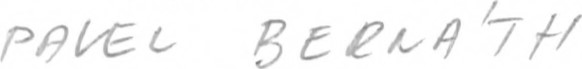 PAVEL BERNÁTH